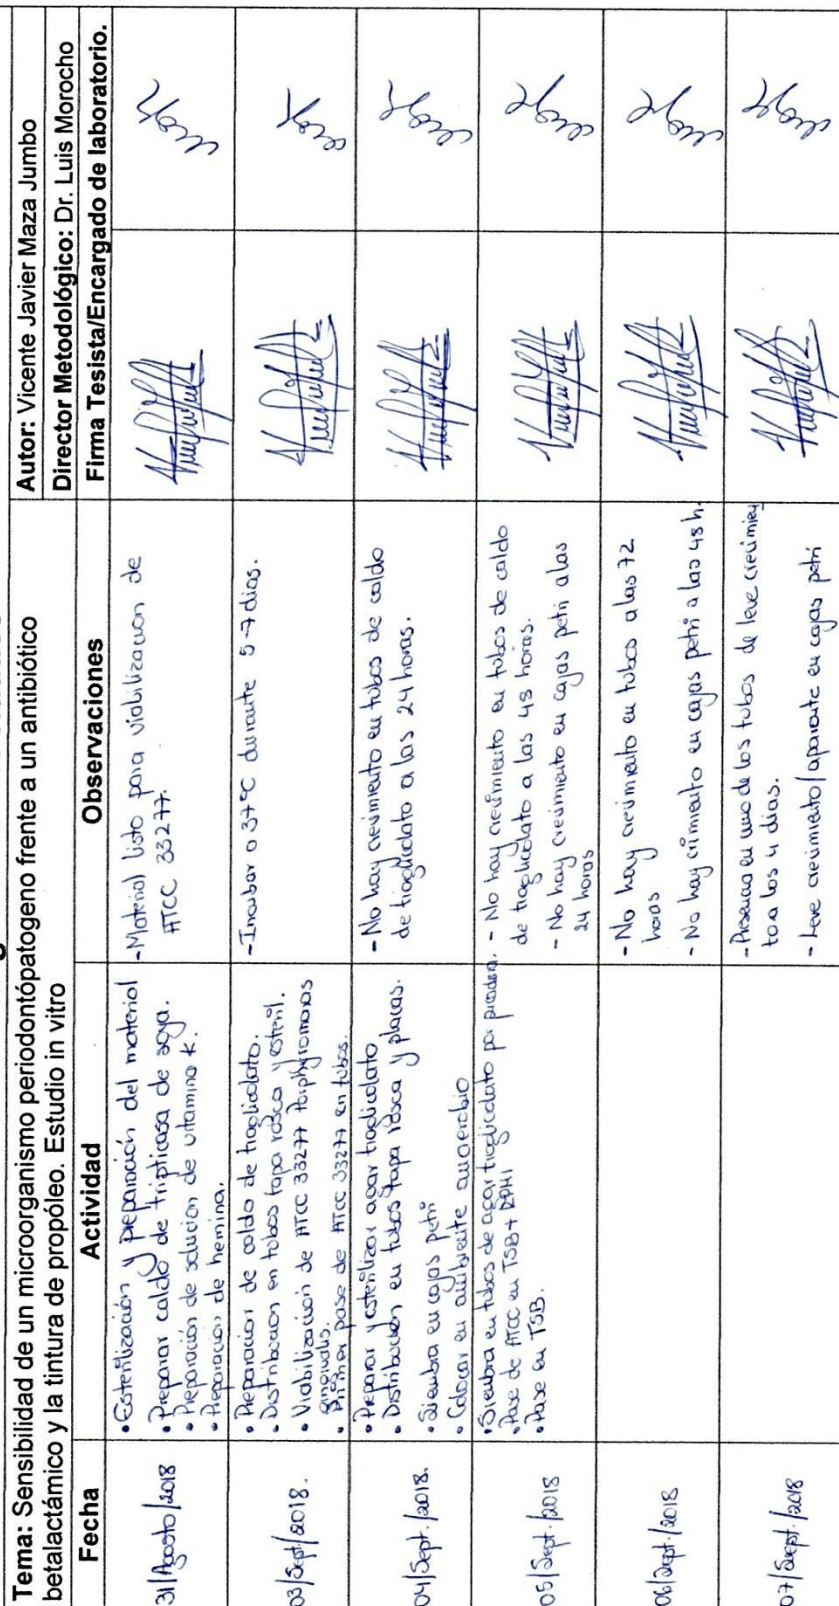 Tema: Sensibilidad de un microorganismo periodontópatogeno frente a un antibiótico
betalactámico y la tintura de propóleo. Estudio in vitro
Autor: Vicente Javier Maza Jumbo
Director Metodológico: Dr. Luis Morocho
Fecha
Actividad
Observaciones
Firma Tesista/Encargado de laboratorio.
31/Agosto/2018
• Esterilización y preparación del material
• Preparar caldo de tripticasa de soya.
• Preparación de solucion de vitamina K.
• Preparacion de hemina.
- Material listo para viabilizacion de
ATCC 33277.
03/Sept/2018.
• Preparacion de caldo de tioglicolato.
• Distribucion en tubos tapa rosca y esteril.
• Viabilización de ATCC 33277 Porphyromonas
gingivalis.
• Primer pase de ATCC 33277 en tubos.
- Incubar a 37°C durante 5-7 dias.
04/Sept./2018.
• Preparar y esterilizar agar tioglicolato
• Distribucion en tubos tapa rosca y placas.
• Siembra en cajas petri
• Colocar en ambiente anaerobio
- No hay crecimiento en tubos de caldo
de tioglicolato a las 24 horas.
05/Sept/2018
• Siembra en tubos de agar tioglicolato por
• Pase de ATCC en TSB +
• Pase en TSB.
- No hay crecimiento en tubos de caldo
de tioglicolato a las 48 horas.
- No hay crecimiento en cajas petri a las
24 horas
06/Sept/2018
- No hay crecimiento en tubos a las 72
horas
- No hay crimiento en cajas petri a las 48 h.
07/Sept/2018
- Presencia en uno de los tubos de leve crecimien
to a los 4 dias.
- Leve crecimiento/aparente en cajas petri